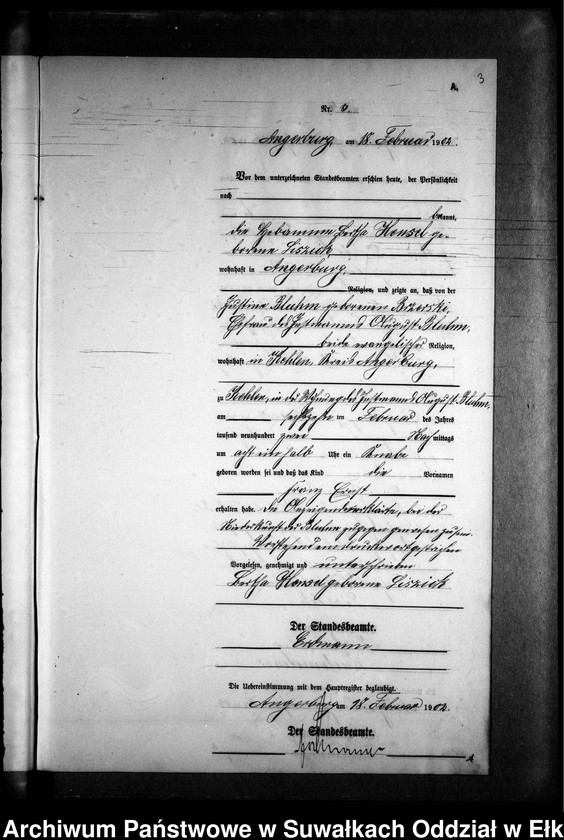 3
A.
Nr. 6.
Angerburg am 18. Februar 1902.
Vor dem unterzeichneten Standesbeamten erschien heute, der Persönlichkeit
nach
bekannt,
die Hebamme Bertha Hensel ge-
borene Liszick,
wohnhaft in Angerburg,
Religion, und zeigte an, daß von der
Justine Bluhm geborenen Bzerski,
Ehefrau des Instmanns August Bluhm,
beide evangelischer Religion,
wohnhaft in Kehlen, Kreis Angerburg,
zu Kehlen, in der Wohnung des Instmanns August Bluhm,
am sechzehn ten Februar des Jahres
tausend neunhundert zwei Nachmittags
um acht einhalb Uhr ein Knabe
geboren worden sei und daß das Kind die Vornamen
Franz Ernst
erhalten habe. Die Anzeigende erklärte, bei der
Niederkunft der Bluhm zugegen gewesen zu sein.
Vorstehend ein Druckwort gestrichen
Vorgelesen, genehmigt und unterschrieben
Bertha Hensel geborene Liszick
Der Standesbeamte.
Erdmann
Die Uebereinstimmung mit dem Hauptregister beglaubigt.
Angerburg am 18. Februar 1902.
Der Standesbeamte.
Archiwum Państwowe w Suwałkach Oddział w Ełk